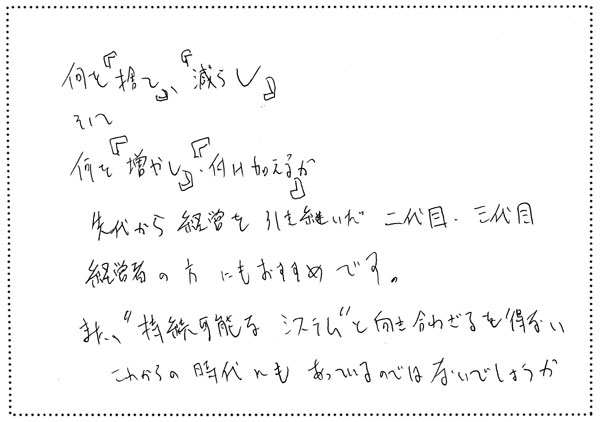 何を『捨て』、『減らし』
そして
何を『増やし』・『付け加えるか』
先代から経営を引き継いだ 二代目・三代目
経営者の方にもおすすめです。
また、“持続可能な システム”と向き合わざるを得ない
これからの時代にも あっているのではないでしょうか